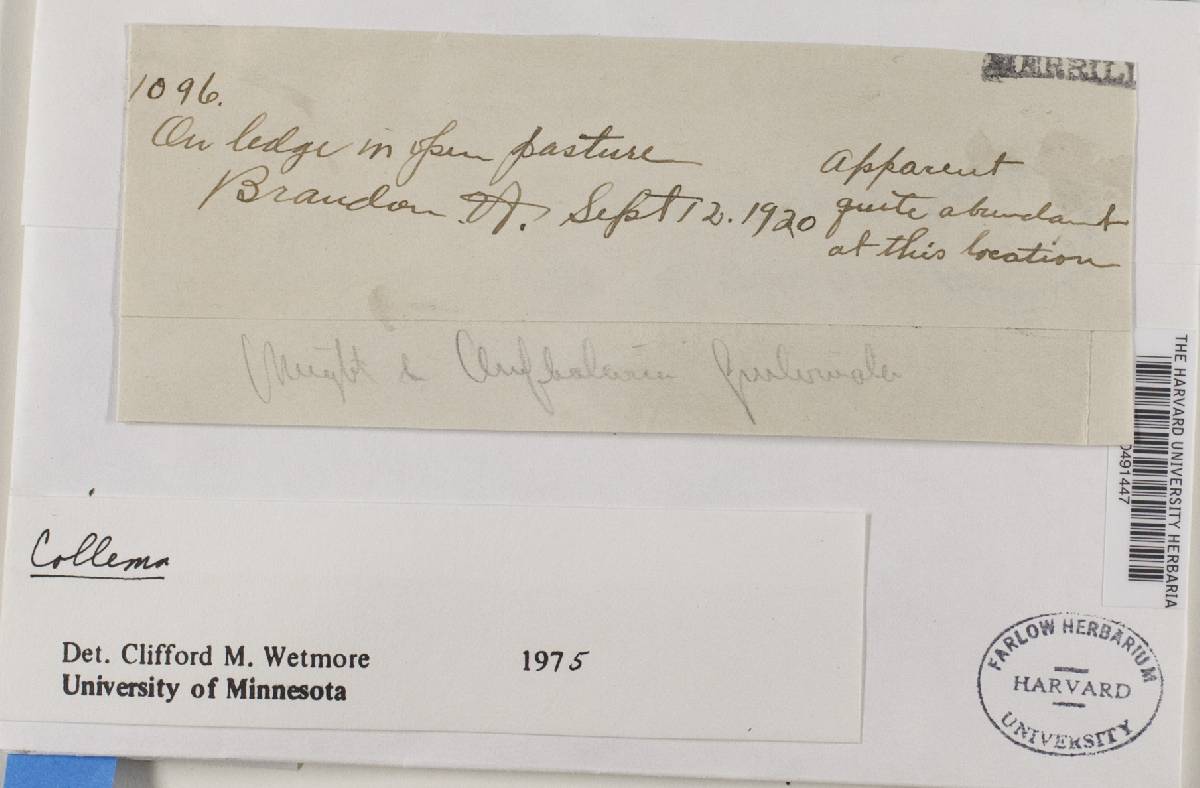 MERRILL
1096.
On ledge in open pasture
Brandon Vt. Sept 12. 1920
apparent
quite abundant
at this location
Might
THE HARVARD UNIVERSITY HERBARIA
0491447
Collema
Det. Clifford M. Wetmore 1975
University of Minnesota
FARLOW HERBARIUM
HARVARD
UNIVERSITY